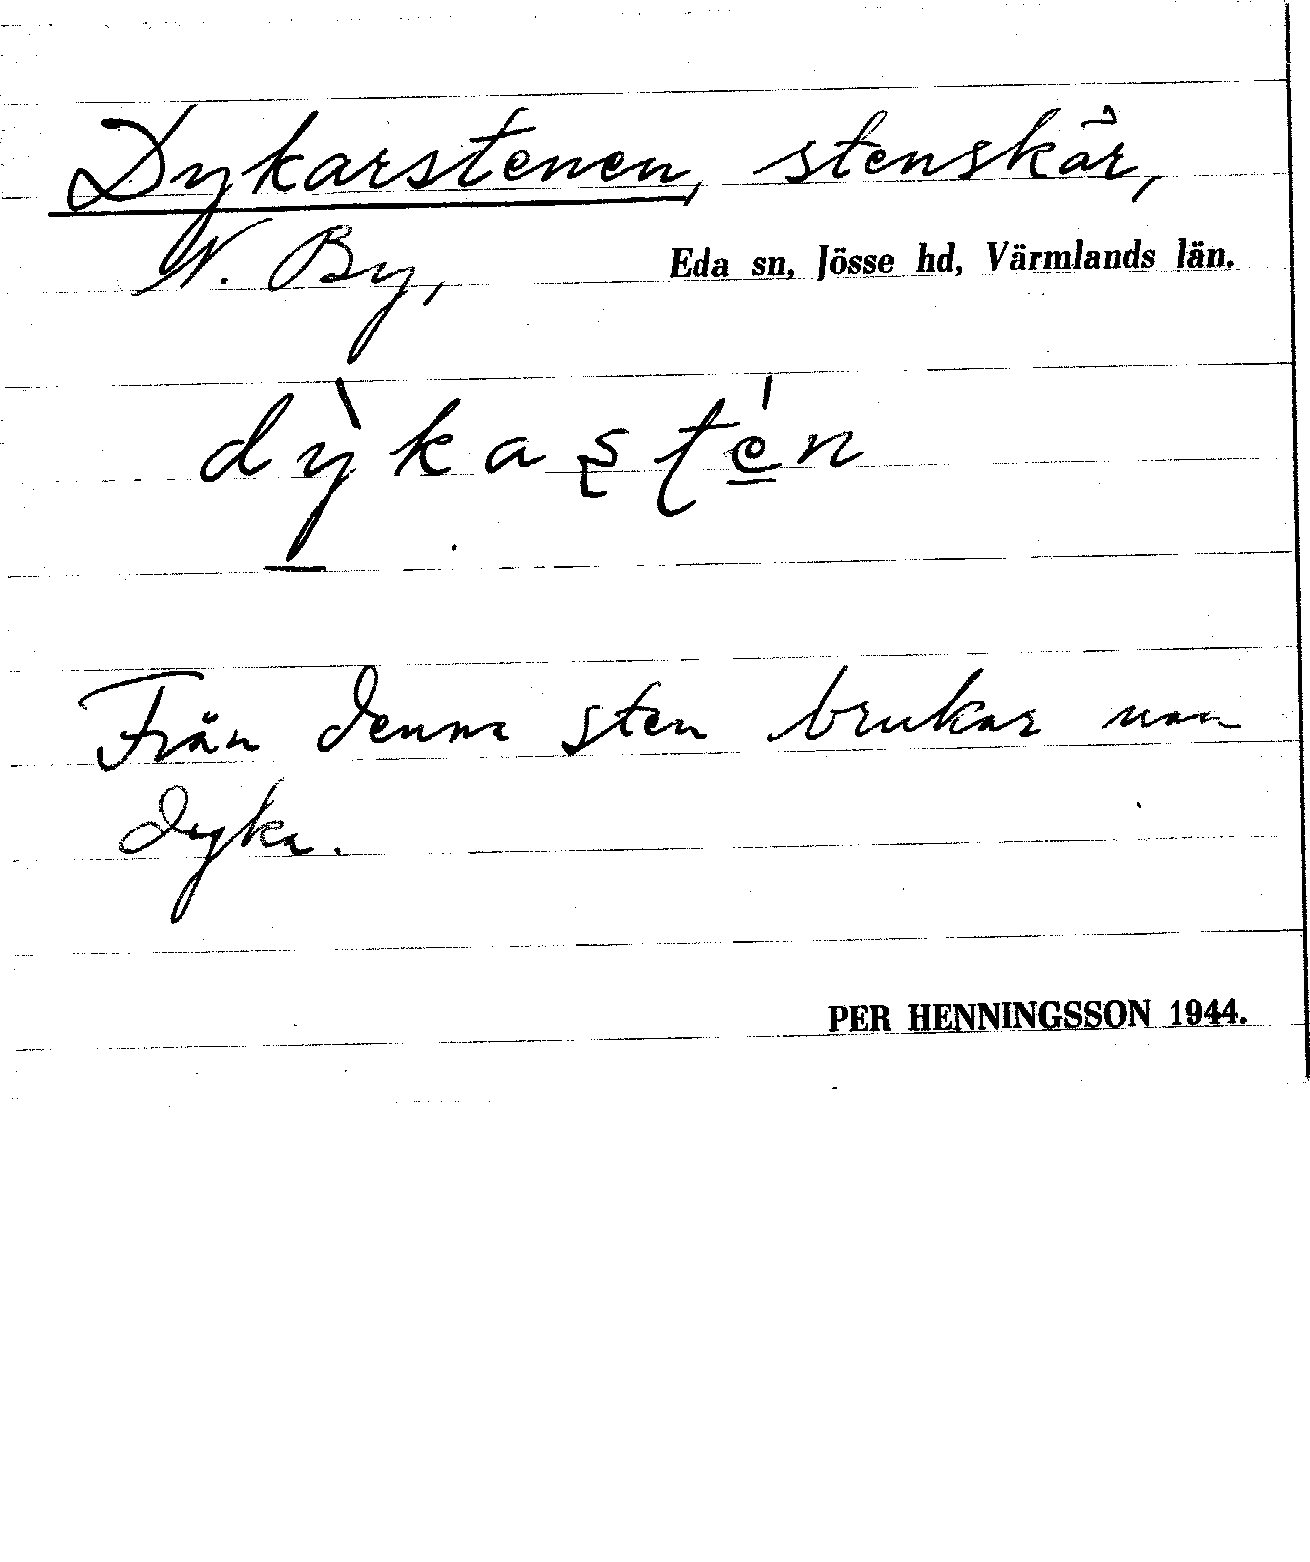 Dykarstenen, stenskär,
N. By, Eda sn, Jösse hd, Värmlands län.
dỳkaʂʈén
Från denna sten brukar man
dyka.
PER HENNINGSSON 1944.